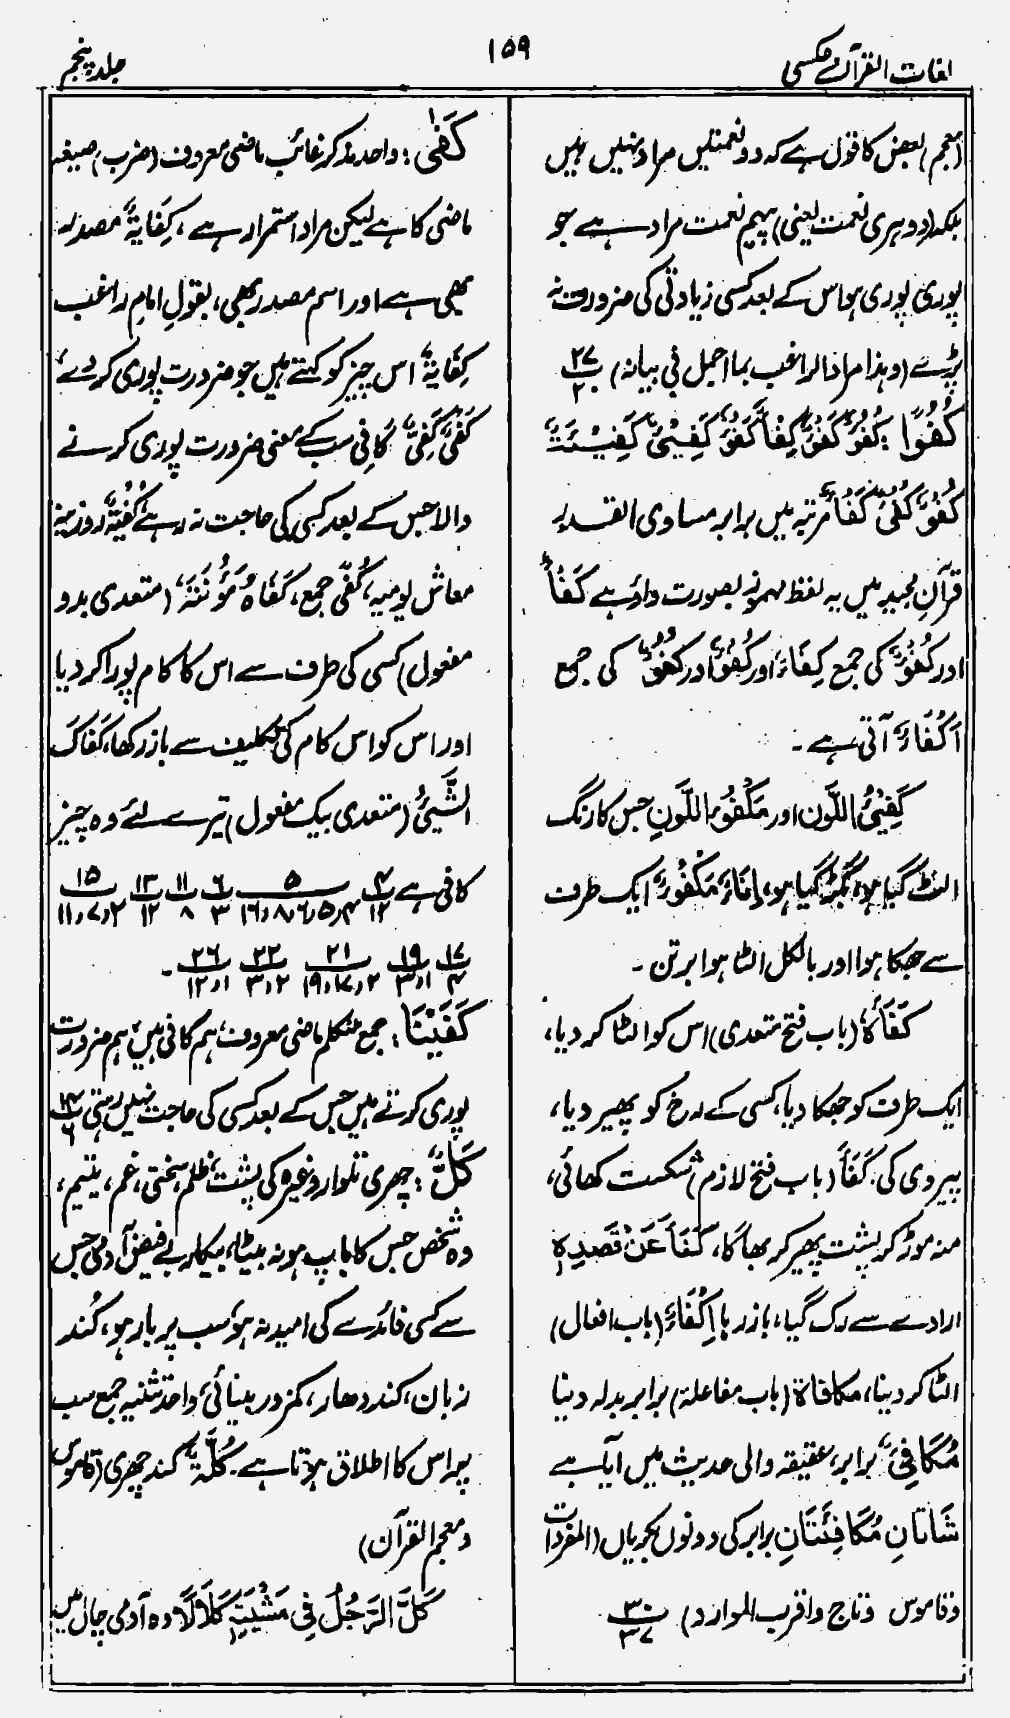 لغات القرآن عکسی
۱۵۹
جلد پنجم
(معجم) بعض کا قول ہے کہ دو نعمتیں مراد نہیں ہیں
بلکہ (دوہری نعمت یعنی) پیہم نعمت مراد ہے جو
پوری پوری ہو اس کے بعد کسی زیادتی کی ضرورت نہ
پڑے (و ہذا مراد الراغب بما اجمل فی بیانہ) ۲۷/۲۰
كُفُوًا: كُفُوٌ كَفُوٌ كِفَأٌ كَفَؤٌ كَفِیْئٌ كَفِیْئَةٌ
كُفُوٌ كُفُیٌ كَفَاءٌ مرتبہ میں برابر مساوی القدر
قرآنِ مجید میں یہ لفظ مہموز بصورت واؤ ہے كَفَأٌ
اور كُفُوٌ کی جمع كِفَاءٌ اور كُفُوٌ اور كُفُوٌ کی جمع
اَكْفَاءٌ آتی ہے۔
كَفِیْئُ اللَّوْن اور مَكْفُوْءُ اللَّوْنِ جس کا رنگ
الٹ گیا ہو، بگڑ گیا ہو، اِنَاءٌ مَكْفُوْءٌ ایک طرف
سے جھکا ہوا اور بالکل الٹا ہوا برتن۔
كَفَأَهٗ (باب فتح متعدی) اس کو الٹا کر دیا،
ایک طرف کو جھکا دیا، کسی کے رخ کو پھیر دیا،
پیروی کی۔ كَفَأَ (باب فتح لازم) شکست کھائی،
منہ موڑ کر پشت پھیر کر بھاگا، كَفَأَ عَنْ قَصْدِهٖ
ارادے سے رک گیا، باز رہا اِكْفَاءٌ (باب افعال)
الٹا کر دینا، مکافاة (باب مفاعلة) برابر بدلہ دینا
مُكَافِئٌ برابر، عقیقہ والی حدیث میں آیا ہے
شَاتَانِ مُكَافِئَتَانِ برابر کی دونوں بکریاں (المفردات
و قاموس و تاج و اقرب الموارد) ۳۰/۳۷
كَفٰى: واحد مذکر غائب ماضی معروف (ضرب) صیغہ
ماضی کا ہے لیکن مراد استمرار ہے، كِفَایَةٌ مصدر
بھی ہے اور اسم مصدر بھی، بقولِ امام راغب
كِفَایَةٌ اس چیز کو کہتے ہیں جو ضرورت پوری کر دے،
كَفْیٌ كَفِیٌّ كَافِی سب کے معنی ضرورت پوری کرنے
والا جس کے بعد کسی کی حاجت نہ رہے كُفْیَةٌ روزینہ
معاش یومیہ، كُفًی جمع، كَفَاهُ مَؤُنَتَهٗ (متعدی بدو
مفعول) کسی کی طرف سے اس کا کام پورا کر دیا
اور اس کو اس کام کی تکلیف سے باز رکھا، كَفَاكَ
الشَّیْئُ (متعدی بیک مفعول) تیرے لئے وہ چیز
کافی ہے ۴/۱۲ ۵/۴،۵،۶،۸،۱۶ ۶/۳ ۱۱/۸ ۱۳/۱۲ ۱۵/۲،۷،۱۱
۱۷/۴ ۱۹/۱،۳ ۲۱/۲،۱۷،۱۹ ۲۲/۲،۳ ۲۶/۱،۱۲ ۔
كَفَیْنَا: جمع متکلم ماضی معروف، ہم کافی ہیں، ہم ضرورت
پوری کرتے ہیں جس کے بعد کسی کی حاجت نہیں رہتی ۱۴/۶
كَلٌّ: چھری تلوار وغیرہ کی پشت، ظلم، سختی، غم، یتیم،
وہ شخص جس کا باپ ہو نہ بیٹا، بیکار بے فیض آدمی جس
سے کسی فائدے کی امید نہ ہو، سب پر بار ہو، کُند
زبان، کند دھار، کمزور بینائی، واحد تثنیہ جمع سب
پر اس کا اطلاق ہوتا ہے۔ كَلَّةٌ کند چھری (قاموس
و معجم القرآن)
كَلَّ الرَّجُلُ فِی مَشْیَتِهٖ كَلَالًا وہ آدمی چال میں